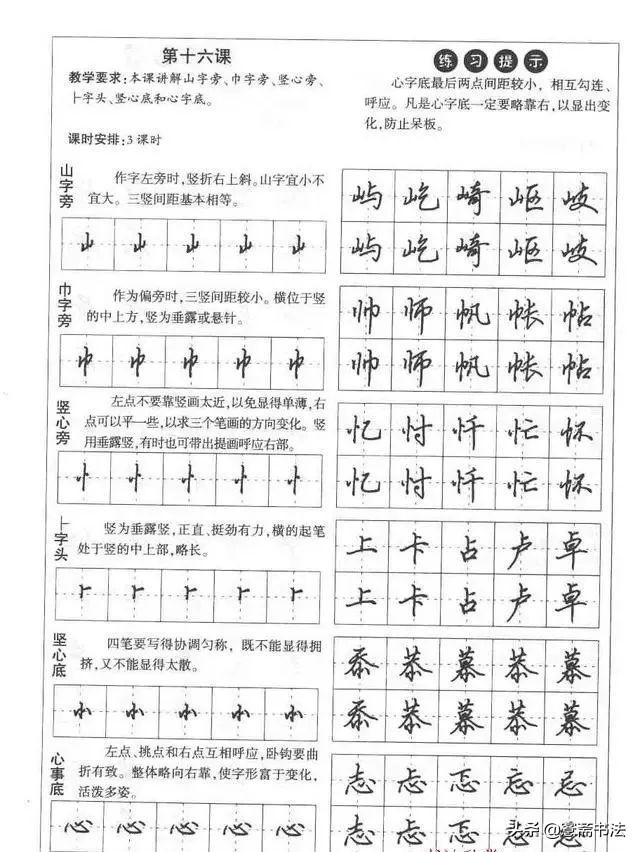 第十六课
教学要求：本课讲解山字旁、巾字旁、竖心旁、
⺊字头、竖心底和心字底。
课时安排：3课时
练习提示
心字底最后两点间距较小，相互勾连、
呼应。凡是心字底一定要略靠右，以显出变
化，防止呆板。
山字旁
作字左旁时，竖折右上斜。山字宜小不
宜大。三竖间距基本相等。
山 山 山 山 山
屿 屹 崎 岖 岐
屿 屹 崎 岖 岐
巾字旁
作为偏旁时，三竖间距较小。横位于竖
的中上方，竖为垂露或悬针。
巾 巾 巾 巾 巾
帅 师 帆 帐 帖
帅 师 帆 帐 帖
竖心旁
左点不要靠竖画太近，以免显得单薄，右
点可以平一些，以求三个笔画的方向变化。竖
用垂露竖，有时也可带出提画呼应右部。
忄 忄 忄 忄 忄
忆 忖 忏 忙 怀
忆 忖 忏 忙 怀
⺊字头
竖为垂露竖，正直、挺劲有力，横的起笔
处于竖的中上部，略长。
⺊ ⺊ ⺊ ⺊ ⺊
上 卡 占 卢 卓
上 卡 占 卢 卓
竖心底
四笔要写得协调匀称，既不能显得拥
挤，又不能显得太散。
⺗ ⺗ ⺗ ⺗ ⺗
忝 恭 慕 恭 慕
忝 恭 慕 恭 慕
心事底
左点、挑点和右点互相呼应，卧钩要曲
折有致。整体略向右靠，使字形富于变化，
活泼多姿。
心 心 心 心 心
志 忐 忘 忌
头条@壹斋书法